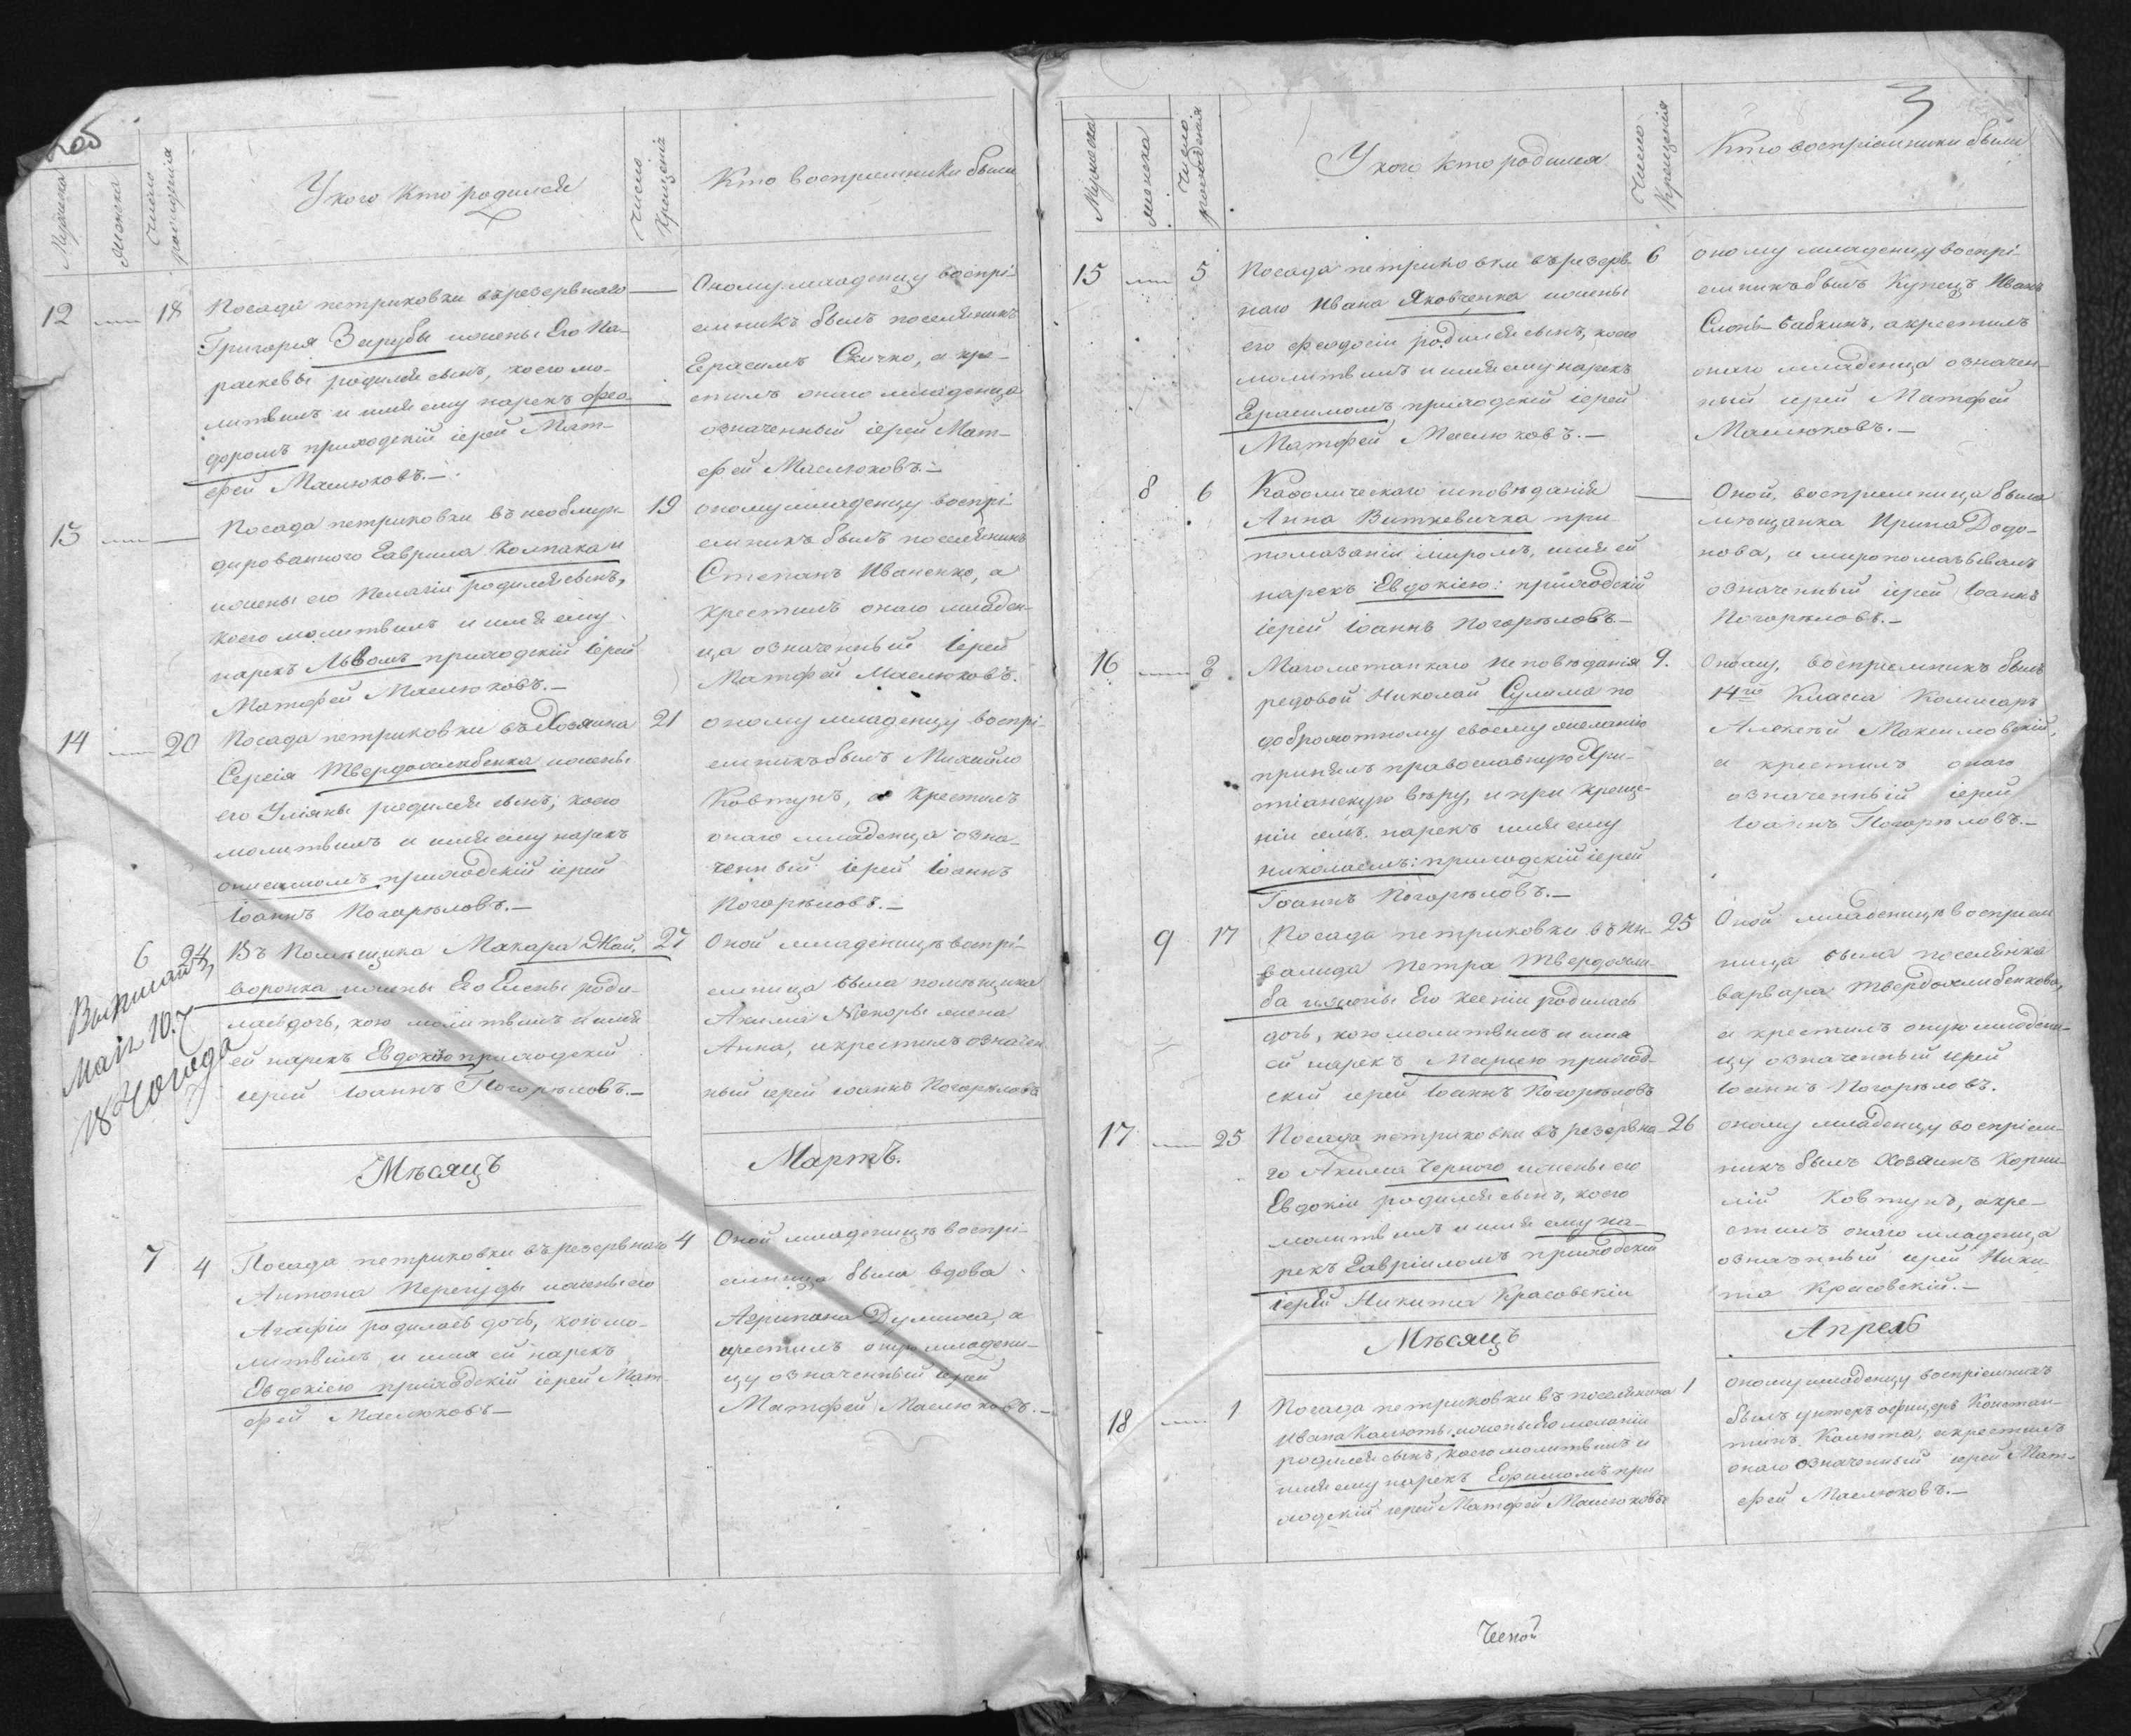 Мужеска
женска
Число рожденія
У кого кто родился
Число Крещенія
Кто воспріемники были
12 — 18
Посада петриковки въ резервнаго
Григорія Зарубы и жены Его Па-
раскевы родился сынъ, коего мо-
литвилъ и имя ему нарекъ Фео-
доромъ приходскій іерей Мат-
фей Маслюковъ.—
Оному младенцу воспрі-
емникъ былъ поселянинъ
Герасимъ Скичко, а кре-
стилъ онаго младенца
означенный іерей Мат-
фей Маслюковъ.—
13 — —
Посада петриковки въ необмун-
дированного Гаврила Колпака и
жены его Пелагіи родился сынъ,
коего молитвилъ и имя ему
нарекъ Львомъ приходскій Іерей
Матфей Маслюковъ.—
19
оному младенцу воспрі-
емникъ былъ поселянинъ
Степанъ Иваненко, а
крестилъ онаго младен-
ца означенный Іерей
Матфей Маслюковъ.
14 — 20
Посада петриковки въ Хозяина
Сергія Твердохлебенка и жены
его Уліяны родился сынъ, коего
молитвилъ и имя ему нарекъ
онисимомъ приходскій іерей
Іоаннъ Погорѣловъ.—
21
оному младенцу воспрі-
емникъ былъ Михайло
Ковтунъ, а крестилъ
онаго младенца озна-
ченный іерей Іоаннъ
Погорѣловъ.—
6 24
Выписанъ
Мая 10.
18 года
Въ Помѣщика Макара Жай-
воронка и жены Его Елены роди-
лась дочь, кою молитвилъ и имя
ей нарекъ Евдокіею приходскій
іерей Іоаннъ Погорѣловъ.—
27
Оной младеницѣ воспрі-
емница была помѣщика
Акима жена
Анна, и крестилъ означен-
ный іерей Іоаннъ Погорѣловъ
Мѣсяцъ
Мартъ.
7 4
Посада петриковки въ резервнаго
Антона Перегуды и жены его
Агафіи родилась дочь, кою мо-
литвилъ и имя ей нарекъ
Евдокіею приходскій іерей Мат-
фей Маслюковъ—
4
Оной младеницѣ воспрі-
емница была вдова
Агрипина а
крестилъ оную младени-
цу означенный іерей
Матфей Маслюковъ.—
3
Мужеска
женска
Число рожденія
У кого кто родился
Число Крещенія
Кто воспріемники были
15 — 5
Посада петриковки въ резерв-
наго Ивана Яковченка и жены
его Феодосіи родился сынъ, коего
молитвилъ и имя ему нарекъ
Герасимомъ приходскій іерей
Матфей Маслюковъ.—
6
оному младенцу воспрі-
емникъ былъ Купецъ Иванъ
а крестилъ
онаго младенца означен-
ный іерей Матфей
Маслюковъ.—
8 6
Католическаго исповѣданія
Анна Виткевичка при
помазаніи миромъ, имя ей
нарекъ Евдокіею: приходскій
іерей Іоаннъ Погорѣловъ—
—
Оной, воспріемница была
мѣщанка Ирина Додо-
нова, и миропомазывалъ
означенный іерей Іоаннъ
Погорѣловъ.—
16 — 8
Магометанкаго исповѣданія
редовой Николай Сулима по
доброхотному своему желанію
принялъ православную Хри-
стіанскую вѣру, и при креще-
ніи семъ нарекъ имя ему
николаемъ: приходскій іерей
Іоаннъ Погорѣловъ.—
9.
Оному, воспріемникъ былъ
14го Класса Комисаръ
Алексѣй Максимовскій,
а крестилъ онаго
означенный іерей
Іоаннъ Погорѣловъ.—
9 17
Посада петриковки въ ин-
валида Петра Твердохли-
ба и жены Его Ксеніи родилась
дочь, кою молитвилъ и имя
ей нарекъ Маріею приход-
скій іерей Іоаннъ Погорѣловъ
25
Оной младеницѣ воспріем-
ница была поселянка
варвара Твердохлибенкова,
а крестилъ оную младени-
цу означенный іерей
Іоаннъ Погорѣловъ.
17 — 25
Посада петриковки въ резервна-
го Акима Черного и жены его
Евдокіи родился сынъ, коего
молитвилъ и имя ему на-
рекъ Гавріиломъ приходскій
іерей Никита Красовскій
26
оному младенцу воспріем-
никъ былъ Хозяинъ Корни-
лій Ковтунъ, а кре-
стилъ онаго младенца
означенный іерей Ники-
та Красовскій.—
Мѣсяцъ
Апрель
18 — 1
Посада петриковки въ поселянина
Ивана Калюты и жены Его меланіи
родился сынъ, коего молитвилъ и
имя ему нарекъ Ефимомъ при
ходскій іерей Матфей Маслюковъ
1
оному младенцу воспріемникъ
былъ унтеръ офицеръ Констан-
тинъ Калюта, а крестилъ
онаго означенный іерей Мат-
фей Маслюковъ.—